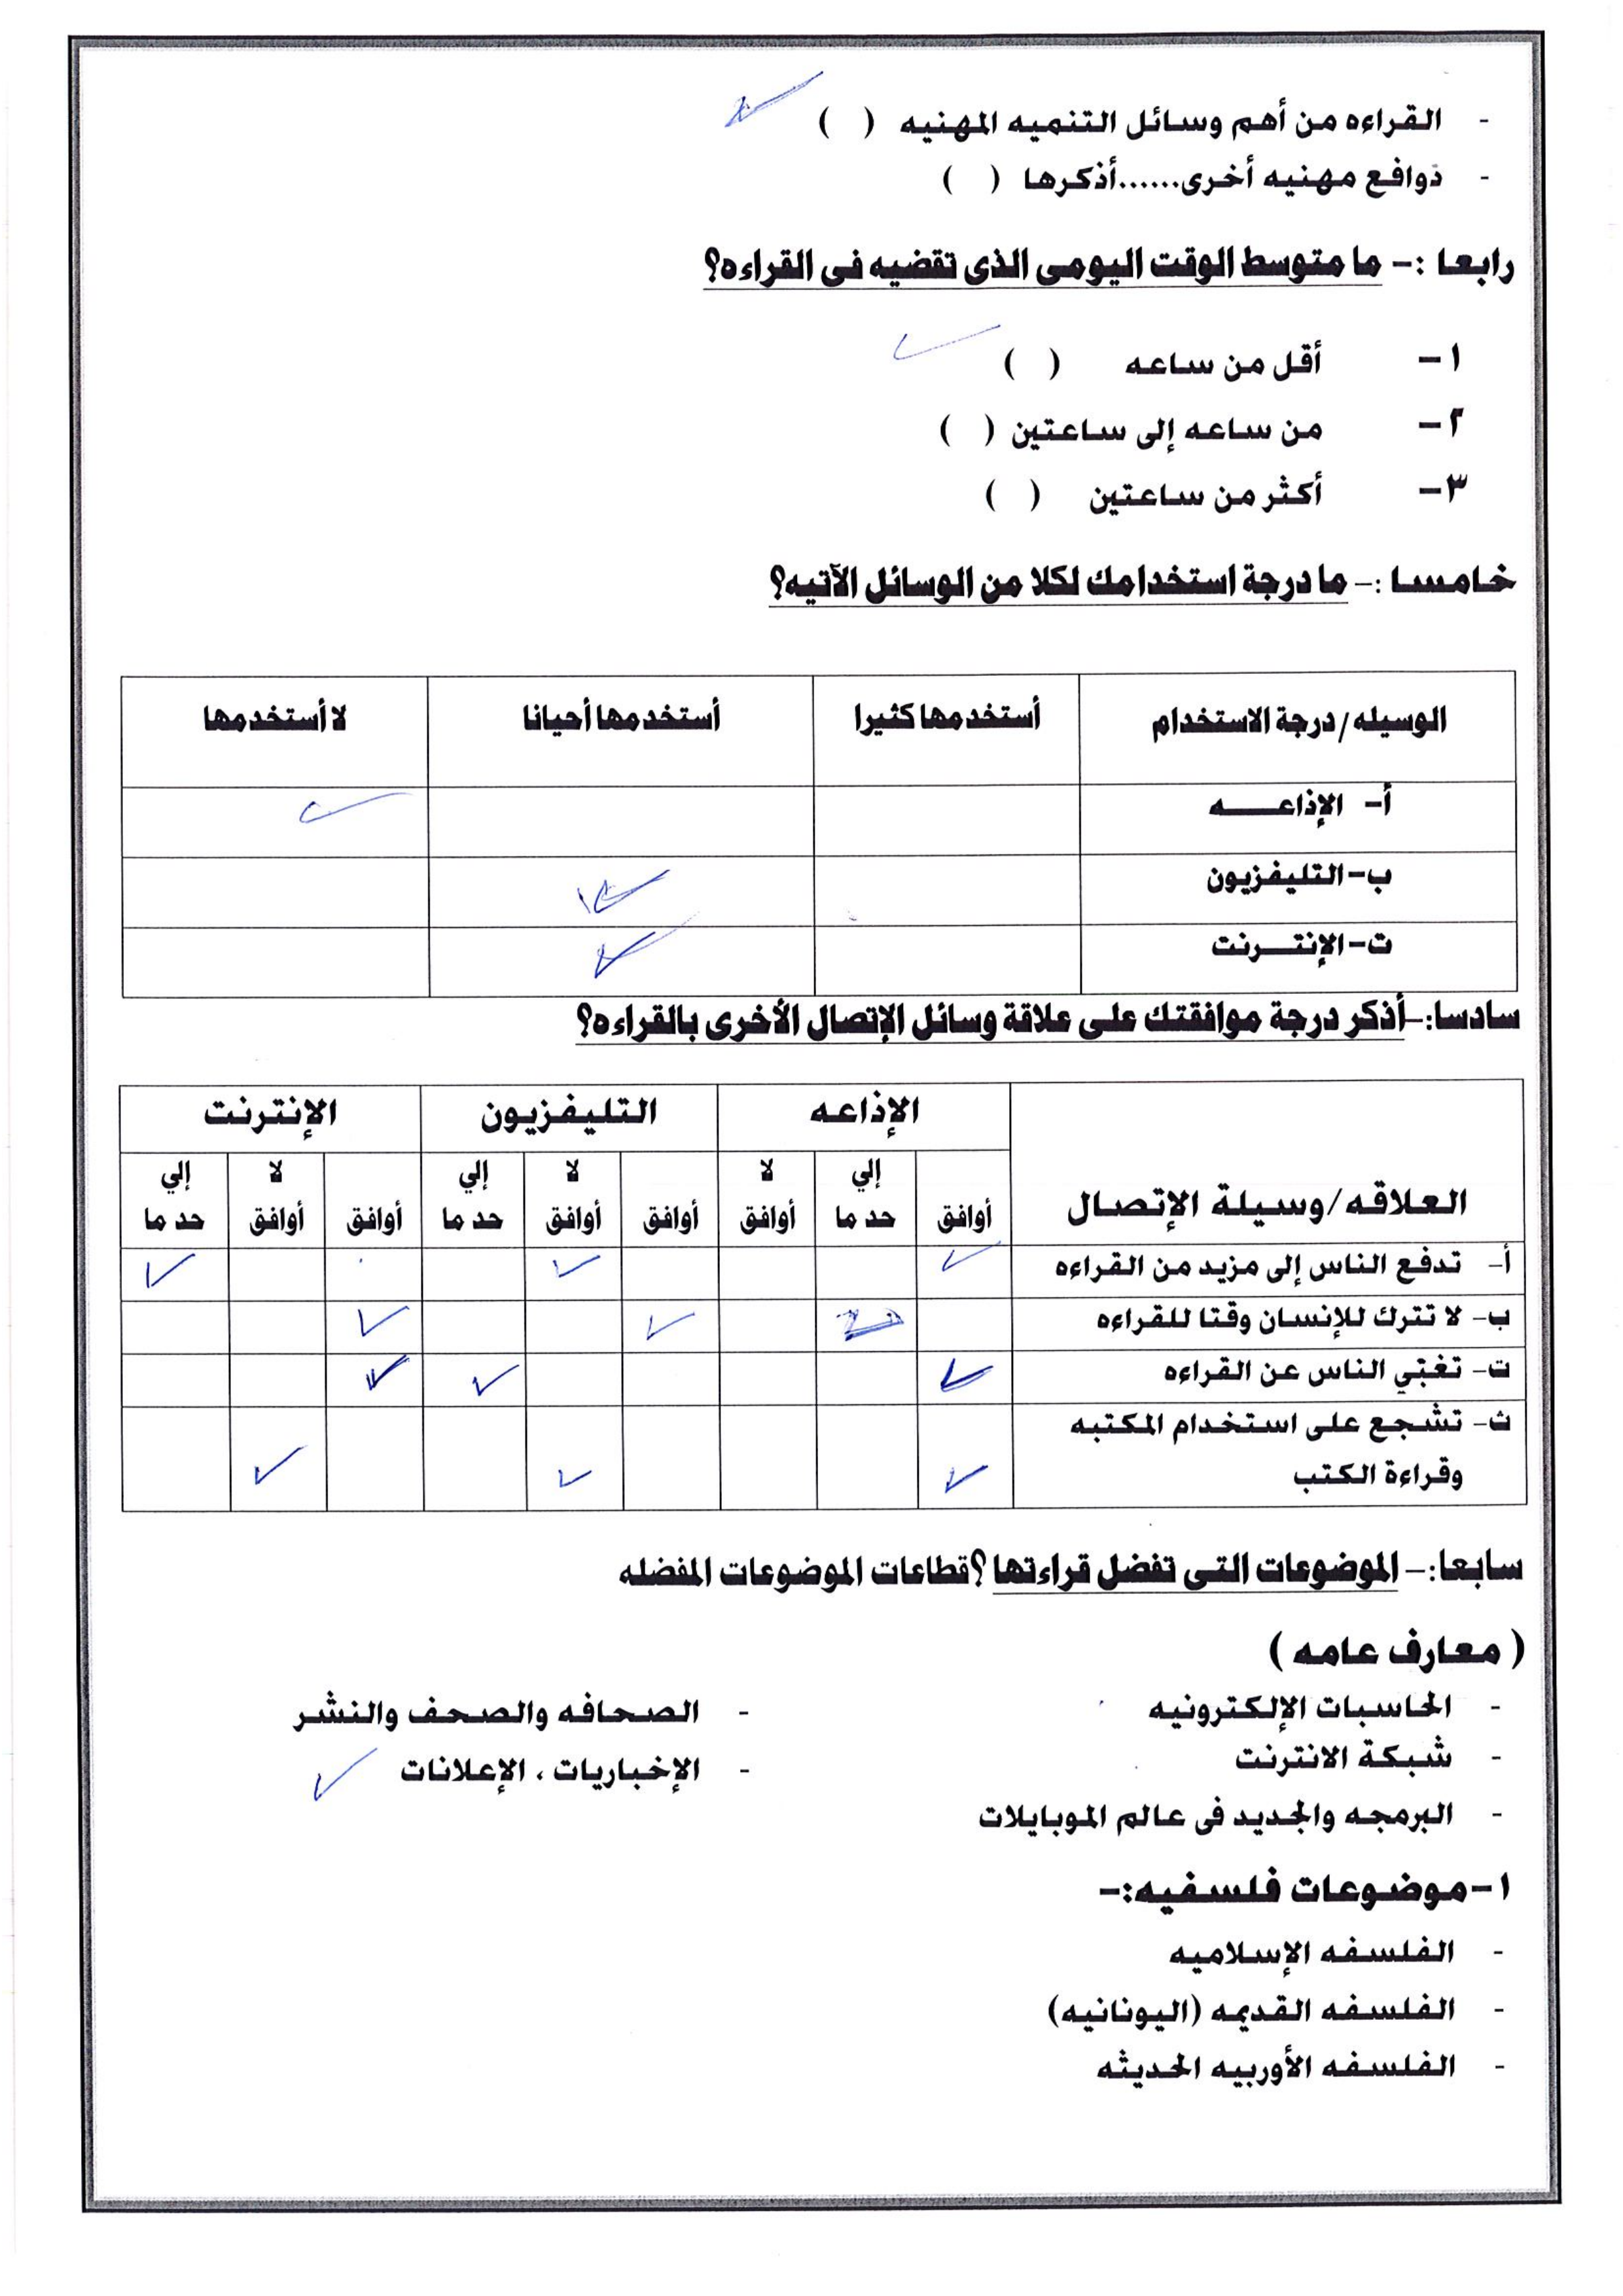 - القراءه من أهم وسائل التنميه المهنيه ( ) ✓
- دوافع مهنيه أخرى......أذكرها ( )
رابعا :- ما متوسط الوقت اليومى الذى تقضيه فى القراءه؟
١- أقل من ساعه ( ) ✓
٢- من ساعه إلى ساعتين ( )
٣- أكثر من ساعتين ( )
خامسا :- ما درجة استخدامك لكلا من الوسائل الآتيه؟
الوسيله/درجة الاستخدام أستخدمها كثيرا أستخدمها أحيانا لا أستخدمها
أ- الإذاعـــــه ✓
ب- التليفزيون ✓
ت- الإنتـــرنت ✓
سادسا:- أذكر درجة موافقتك على علاقة وسائل الإتصال الأخرى بالقراءه؟
العلاقه/وسيلة الإتصال الإذاعه التليفزيون الإنترنت
أوافق إلي حد ما لا أوافق أوافق لا أوافق إلي حد ما أوافق لا أوافق إلي حد ما
أ- تدفع الناس إلى مزيد من القراءه ✓ ✓ ✓
ب- لا تترك للإنسان وقتا للقراءه ✓ ✓ ✓
ت- تغنّي الناس عن القراءه ✓ ✓ ✓
ث- تشجع على استخدام المكتبه
وقراءة الكتب ✓ ✓ ✓
سابعا:- الموضوعات التى تفضل قراءتها ؟قطاعات الموضوعات المفضله
( معارف عامه )
- الحاسبات الإلكترونيه - الصحافه والصحف والنشر
- شبكة الانترنت - الإخباريات ، الإعلانات ✓
- البرمجه والجديد فى عالم الموبايلات
١-موضوعات فلسفيه:-
- الفلسفه الإسلاميه
- الفلسفه القديمه (اليونانيه)
- الفلسفه الأوربيه الحديثه